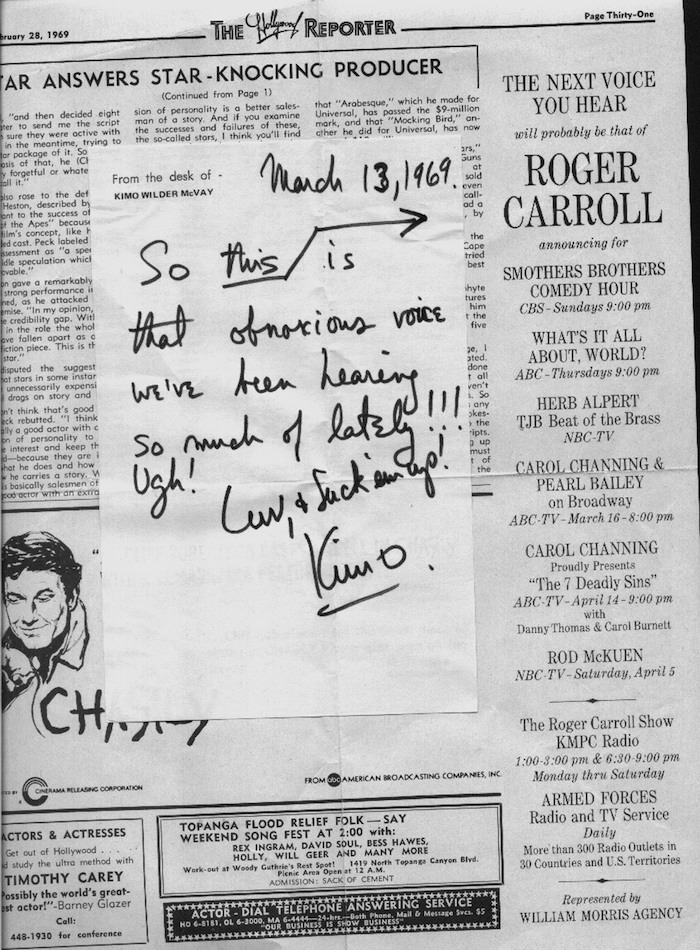 February 28, 1969
THE Hollywood REPORTER
Page Thirty-One
AR ANSWERS STAR-KNOCKING PRODUCER
(Continued from Page 1)
"and then decided eight
to send me the script
sure they were active with
in the meantime, trying to
package of it. So
sis of that, he (Ch
forgetful or whate
all it."
lso rose to the def
Heston, described by
nt to the success of
the Apes" because
film's concept, like h
ed cast. Peck labeled
ssessment as "a spe
dle speculation which
ovable."
on gave a remarkably
strong performance i
ned, as he attacked
emise. "In my opinion,
e credibility gap. With
in the role the whol
ave fallen apart as a
iction piece. This is th
star."
disputed the suggest
at stars in some instan
unnecessarily expensi
drags on story and
n't think that's good
ck rebutted. "I think
lly a good actor with c
n of personality to
e interest and keep th
d—because they are i
hat he does and how
w he carries a story. W
s basically salesmen of
good actor with an extra
sion of personality is a better sales-
man of a story. And if you examine
the successes and failures of these,
the so-called stars, I think you'll find
that "Arabesque," which he made for
Universal, has passed the $9-million
mark, and that "Mocking Bird," an-
other he did for Universal, has now
ars,"
Guns
at
sold
even
call-
ad a
, by
the
Cape
tried
best
hyte
tures
him
t the
five
ge, I
ated.
done
t all
ven't
s. So
any
okes-
the
ripts.
g up
must
of
the
From the desk of -
KIMO WILDER McVAY
March 13, 1969.
So this is
that obnoxious voice
we've been hearing
so much of lately!!!
Ugh!
Luv, & Suck 'em up!
Kimo.
CINERAMA RELEASING CORPORATION
FROM abc AMERICAN BROADCASTING COMPANIES, INC.
ACTORS & ACTRESSES
Get out of Hollywood . . . .
d study the ultra method with
TIMOTHY CAREY
Possibly the world's great-
est actor!"-Barney Glazer
Call:
448-1930 for conference
TOPANGA FLOOD RELIEF FOLK — SAY
WEEKEND SONG FEST AT 2:00 with:
REX INGRAM, DAVID SOUL, BESS HAWES,
HOLLY, WILL GEER AND MANY MORE
Work-out at Woody Guthrie's Rest Spot! 1419 North Topanga Canyon Blvd.
Picnic Area Open at 12 A.M.
ADMISSION: SACK OF CEMENT
ACTOR - DIAL TELEPHONE ANSWERING SERVICE
HO 6-8181, OL 6-3000, MA 6-4444—24-hrs.—Both Phone, Mail & Message Svcs. $5
"OUR BUSINESS IS SHOW BUSINESS"
THE NEXT VOICE
YOU HEAR
will probably be that of
ROGER
CARROLL
announcing for
SMOTHERS BROTHERS
COMEDY HOUR
CBS - Sundays 9:00 pm
WHAT'S IT ALL
ABOUT, WORLD?
ABC - Thursdays 9:00 pm
HERB ALPERT
TJB Beat of the Brass
NBC-TV
CAROL CHANNING &
PEARL BAILEY
on Broadway
ABC-TV - March 16 - 8:00 pm
CAROL CHANNING
Proudly Presents
"The 7 Deadly Sins"
ABC-TV - April 14 - 9:00 pm
with
Danny Thomas & Carol Burnett
ROD McKUEN
NBC-TV - Saturday, April 5
The Roger Carroll Show
KMPC Radio
1:00-3:00 pm & 6:30-9:00 pm
Monday thru Saturday
ARMED FORCES
Radio and TV Service
Daily
More than 300 Radio Outlets in
30 Countries and U.S. Territories
Represented by
WILLIAM MORRIS AGENCY